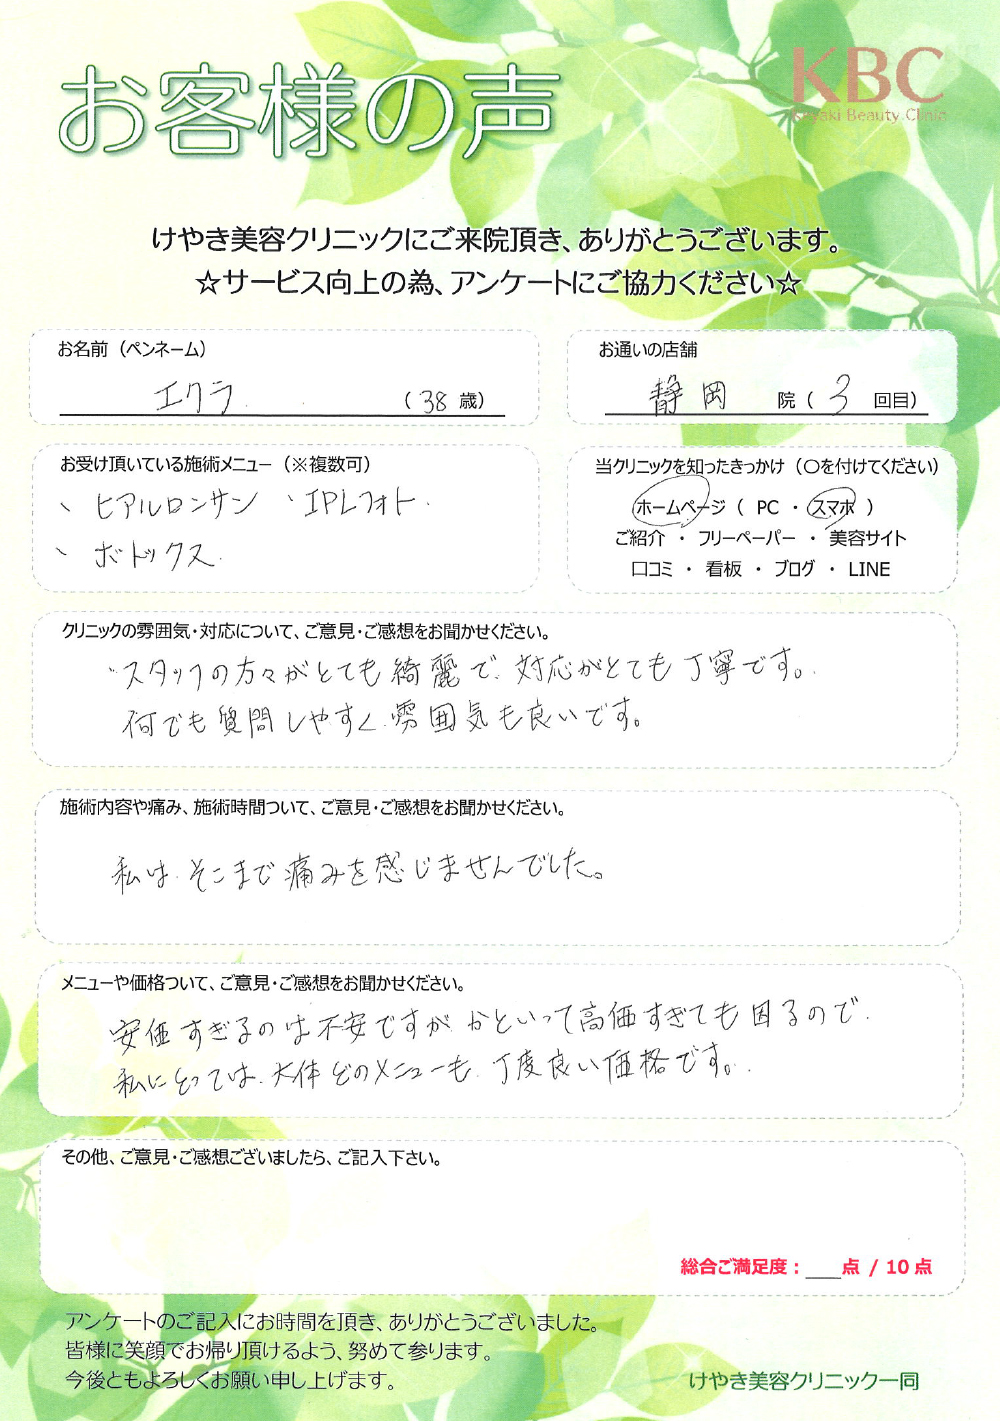 お客様の声
KBC
Keyaki Beauty Clinic
けやき美容クリニックにご来院頂き、ありがとうございます。
☆サービス向上の為、アンケートにご協力ください☆
お名前（ペンネーム）
エクラ （38歳）
お通いの店舗
静岡 院（3回目）
お受け頂いている施術メニュー（※複数可）
、ヒアルロンサン 、IPLフォト.
、ボトックス.
当クリニックを知ったきっかけ（〇を付けてください）
ホームページ（ PC ・ スマホ ）
ご紹介 ・ フリーペーパー ・ 美容サイト
口コミ ・ 看板 ・ ブログ ・ LINE
クリニックの雰囲気・対応について、ご意見・ご感想をお聞かせください。
スタッフの方々がとても綺麗で、対応がとても丁寧です。
何でも質問しやすく、雰囲気も良いです。
施術内容や痛み、施術時間ついて、ご意見・ご感想をお聞かせください。
私は、そこまで痛みを感じませんでした。
メニューや価格ついて、ご意見・ご感想をお聞かせください。
安価すぎるのは不安ですが、かといって高価すぎても困るので、
私にとっては、大体どのメニューも、丁度良い価格です。
その他、ご意見・ご感想ございましたら、ご記入下さい。
総合ご満足度：___点 / 10点
アンケートのご記入にお時間を頂き、ありがとうございました。
皆様に笑顔でお帰り頂けるよう、努めて参ります。
今後ともよろしくお願い申し上げます。
けやき美容クリニック一同